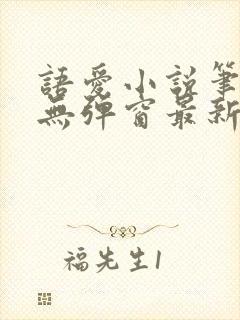 語愛小說筆
無彈窗最新
福先生1